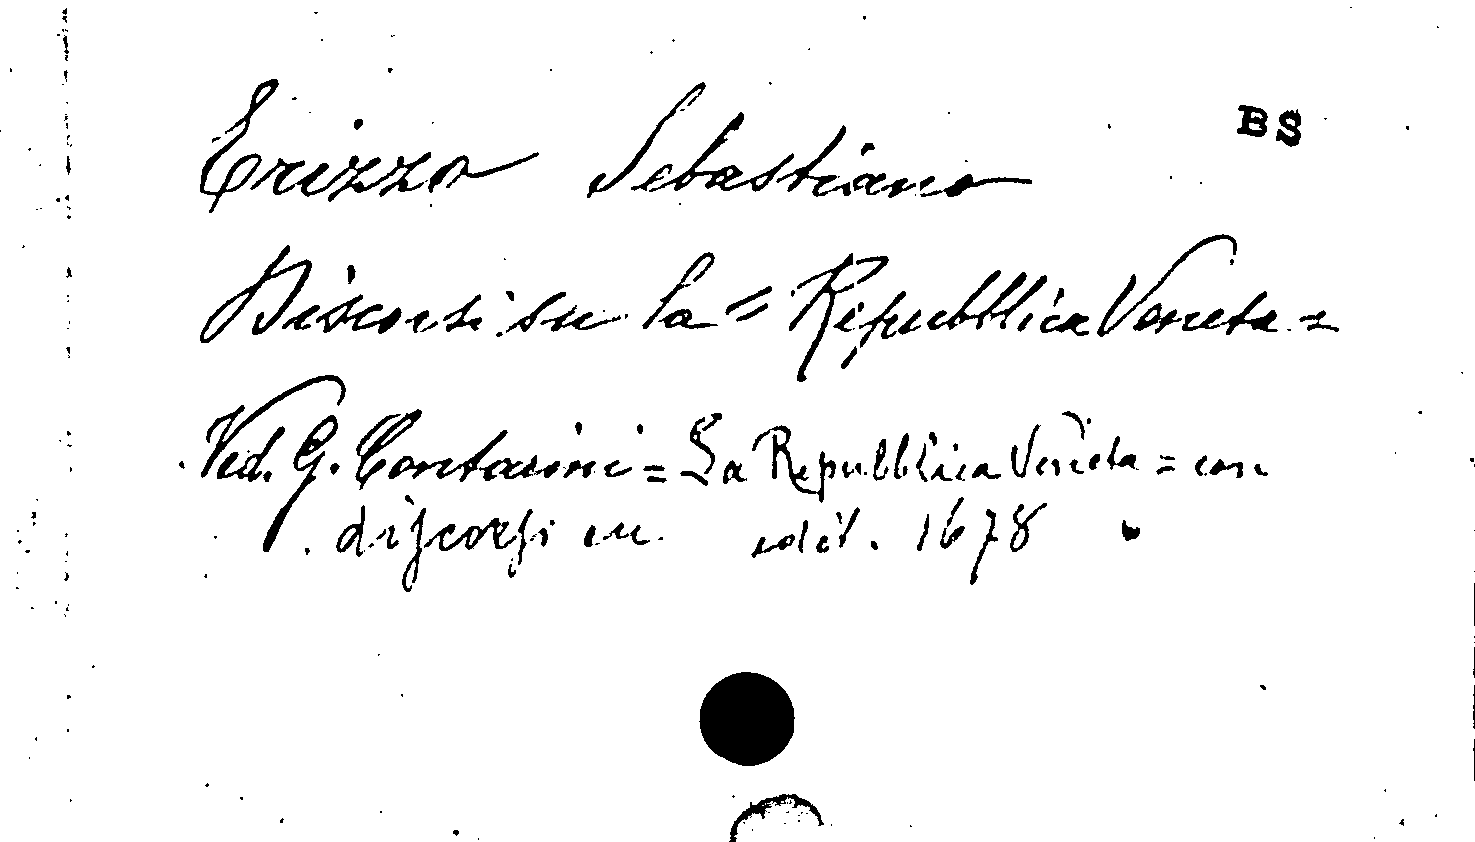 BS
Erizzo Sebastiano
Discorsi su la = Repubblica Veneta =
Ved. G. Contarini = La Repubblica Veneta = con
discorsi edit. 1678